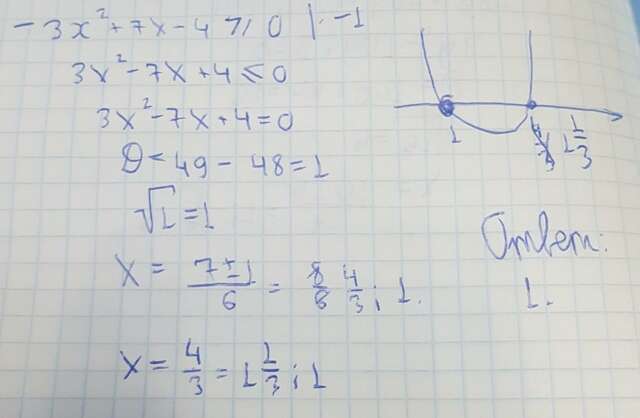 -3x²+7x-4 ⩾ 0 |·-1
3x²-7x+4 ≤ 0
3x²-7x+4=0
D = 49 - 48 = 1
√1 = 1
x = (7±1)/6 = 8/6 4/3; 1.
x = 4/3 = 1 1/3; 1
1
1 1/3
Ответ:
1.